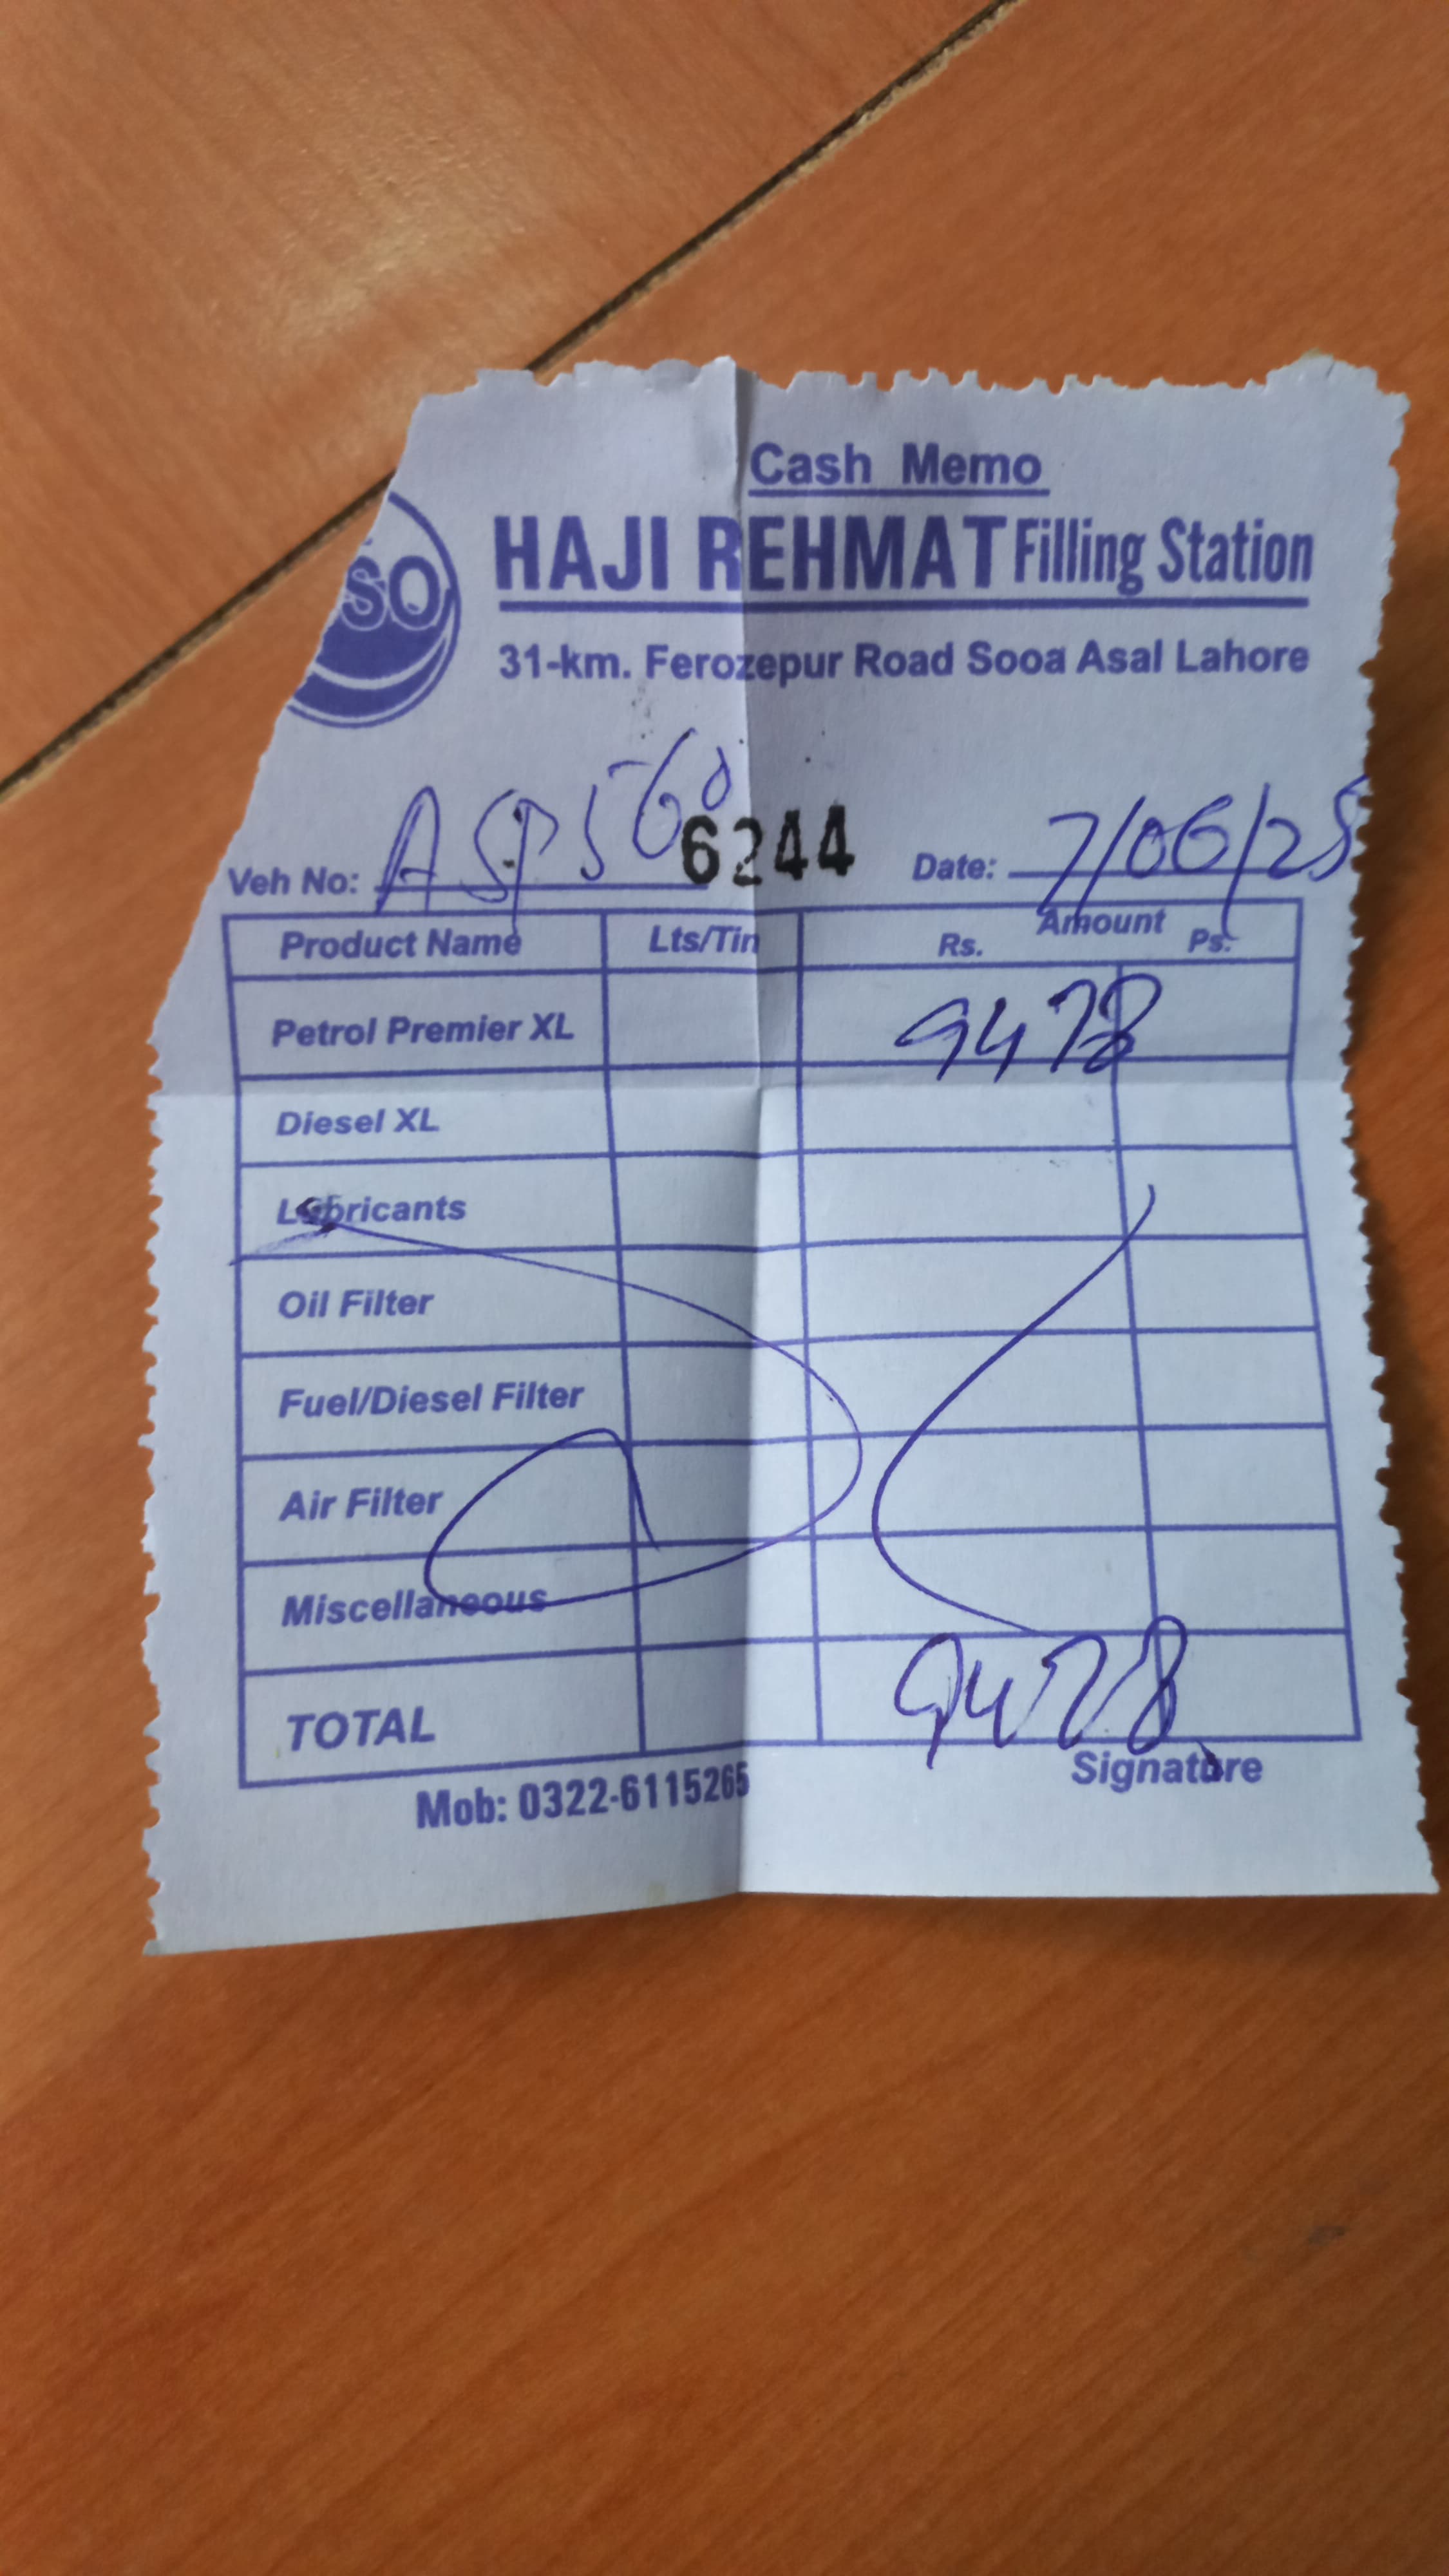 Cash Memo
SO
HAJI REHMAT Filling Station
31-km. Ferozepur Road Sooa Asal Lahore
Veh No: 6244 Date: 7/06/25
Product Name Lts/Tin Amount Rs. Ps.
Petrol Premier XL 9478
Diesel XL
Lubricants
Oil Filter
Fuel/Diesel Filter
Air Filter
Miscellaneous
TOTAL 9478
Mob: 0322-6115265 Signature